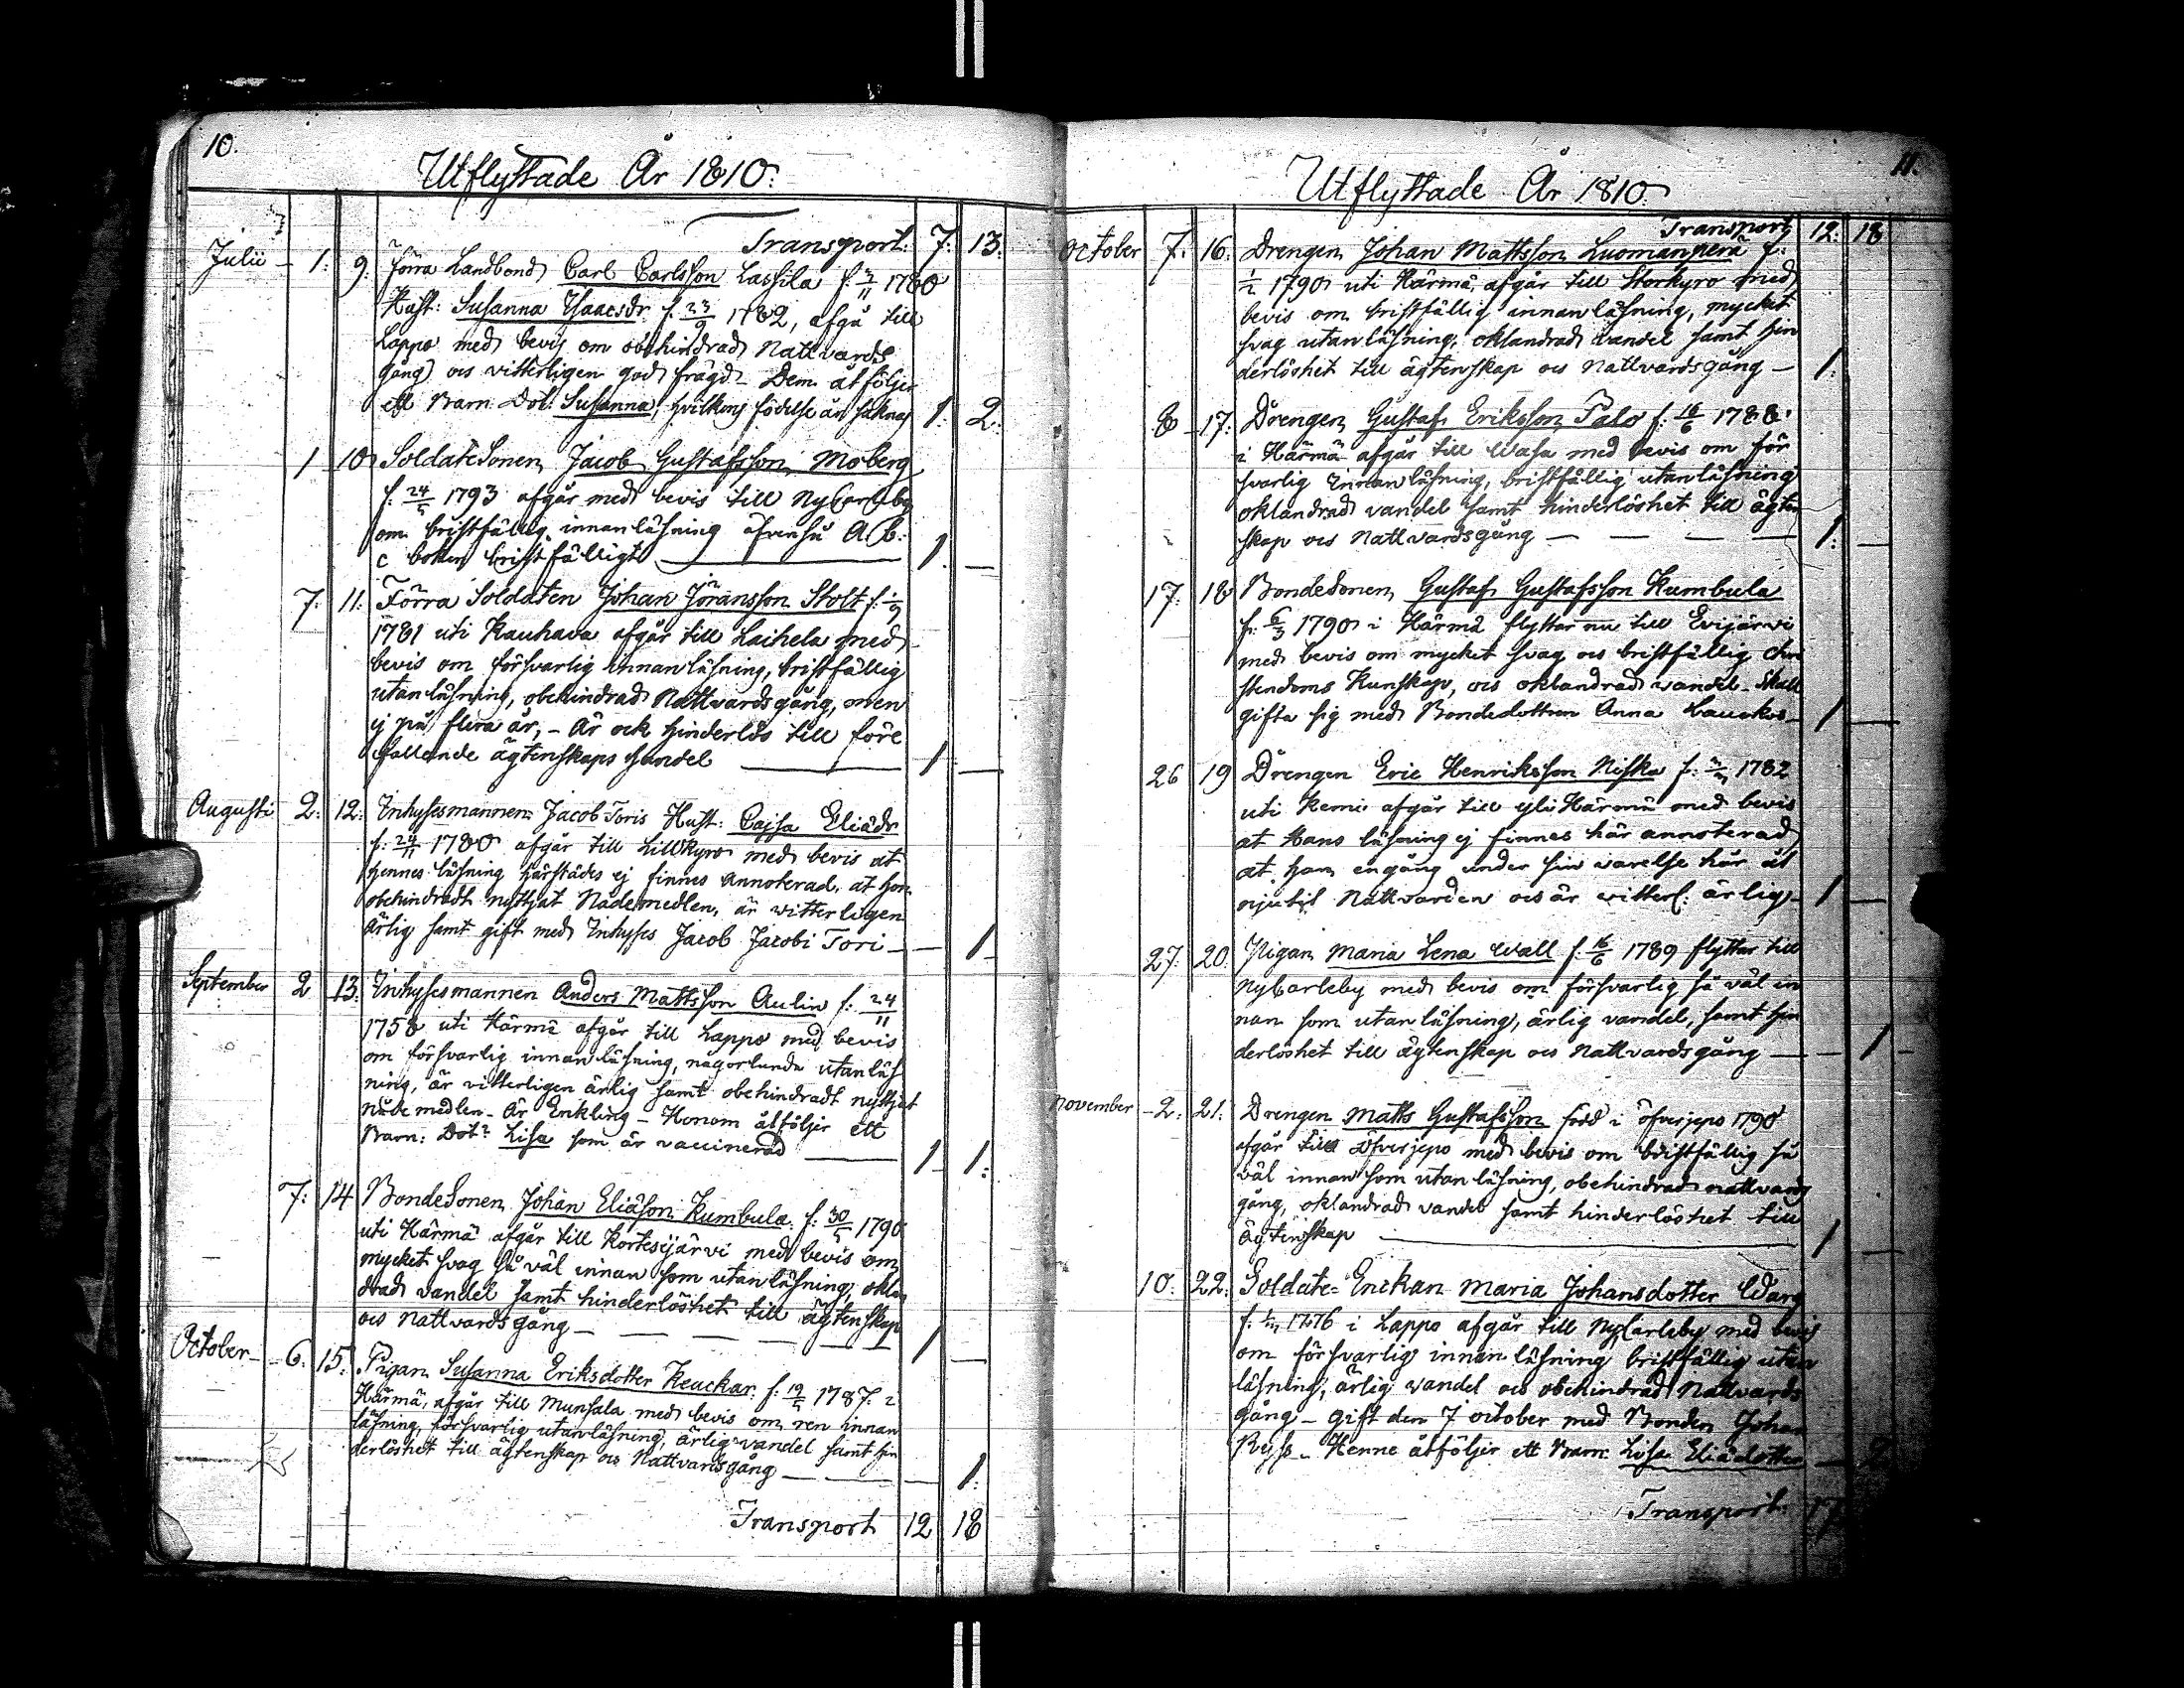 10.
Utflyttade År 1810.
Transport. 7. 13.
Julii 1. 9. Förra Landbond Carl Carlsson Lassila f. 1780
Hust: Susanna Isaacsdr f. 23/9 1782, afgå till
Lappo med bevis om obehindrad Nattvards
gång och vitterligen god frägd. Dem åtföljer
ett Barn Dot: Susanna, hvilkens födelse år saknas 1. 2.
1 10 SoldateSonen Jacob Gustafsson Moberg
f. 24/5 1793 afgår med bevis till NyCarleby
om bristfällig innanläsning äfvensu A. B.
c boken bristfälligt 1. —
7. 11. Förra Soldaten Johan Jöransson Stolt f.
1781 uti Kauhava afgår till Laihela med
bevis om försvarlig innanläsning, bristfällig
utanläsning, obehindrad Nattvardsgång, men
ej på flera år, – Är ock hinderlös till före
fallande ägtenskaps handel 1 —
Augusti 2. 12. Inhysesmannen Jacob Toris Hust: Cajsa Eliädr
f. 24/11 1780 afgår till Lillkyro med bevis at
hennes läsning härstädes ej finnes annoterad, at hon
obehindradt nyttjat Nådemedlen, är witterligen
ärlig samt gift med Inhyses Jacob Jacobi Tori — 1
September 2 13. Inhysesmannen Anders Mattsson Aulin f. 24/11
1758 uti Härmä afgår till Lappo med bevis
om försvarlig innanläsning, någorlunda utanläs
ning, är vitterligen ärlig samt obehindradt nyttjat
nådemedlen – Är Enkling – Honom åtföljer ett
Barn: Dotr Lisa som är vaccinerad 1 1.
7. 14 BondeSonen Johan Eliäson Kumbula f. 30/5 1790
uti Härmä afgår till Kortesjärvi med bevis om
mycket svag så väl innan som utanläsning, oklan
drad vandel samt hinderlöshet till ägtenskap
och Nattvardsgång 1 —
October 6. 15. Pigan Susanna Eriksdotter Keuckar f. 19/5 1787. i
Härmä, afgår till Munsala med bevis om ren innan
läsning, försvarlig utanläsning, ärlig vandel samt hin
derlöshet till ägtenskap och Nattvardsgång — 1.
Transport 12 18
11.
Utflyttade År 1810.
Transport 12. 18
October 7. 16. Drengen Johan Mattsson Luomanperä f.
1790 uti Härmä, afgår till Storkyro med
bevis om bristfällig innanläsning, mycket
svag utanläsning, oklandrad vandel samt hin
derlöshet till ägtenskap och Nattvardsgång — 1.
8 17. Drengen Gustaf Eriksson Palo f. 16/6 1788
i Härmä afgår till Wasa med bevis om för
svarlig Innanläsning, bristfällig utanläsning
oklandrad vandel samt hinderlöshet till ägten
skap och Nattvardsgång 1. —
17. 18 BondeSonen Gustaf Gustafsson Kumbula
f. 6/3 1790 i Härmä flyttar nu till Evijärvi
med bevis om mycket svag och bristfällig chri
stendoms Kunskap, och oklandrad vandel. Skall
gifta sig med Bondedottren Anna 1 —
26 19 Drengen Eric Henriksson Niska f. 1782
uti Kemi afgår till ylihärmä med bevis
at Hans läsning ej finnes här annoterad
at han en gång under sin warelse här åt
njutit Nattvarden och är witterl: ärlig 1 —
27. 20. Pigan Maria Lena Wall f. 16/6 1789 flyttar till
NyCarleby med bevis om försvarlig så väl in
nan som utanläsning, ärlig vandel, samt hin
derlöshet till ägtenskap och Nattvardsgång — 1
November 2. 21. Drengen Matts Gustafsson född i Öfverjepo 1790
afgår till Öfverjepo med bevis om bristfällig så
väl innan som utanläsning, obehindrad nattvards
gång, oklandrad vandel samt hinderlöshet till
Ägtenskap 1 —
10. 22. Soldate-Enckan Maria Johansdotter Warg
f. 1776 i Lappo afgår till NyCarleby med bevis
om försvarlig innanläsning bristfällig utan
läsning, ärlig vandel och obehindrad Nattvards
gång – gift den 7 october med Bonden Johan
Henne åtföljer ett Barn Lisa Eliädotter — 2
Transport. 17